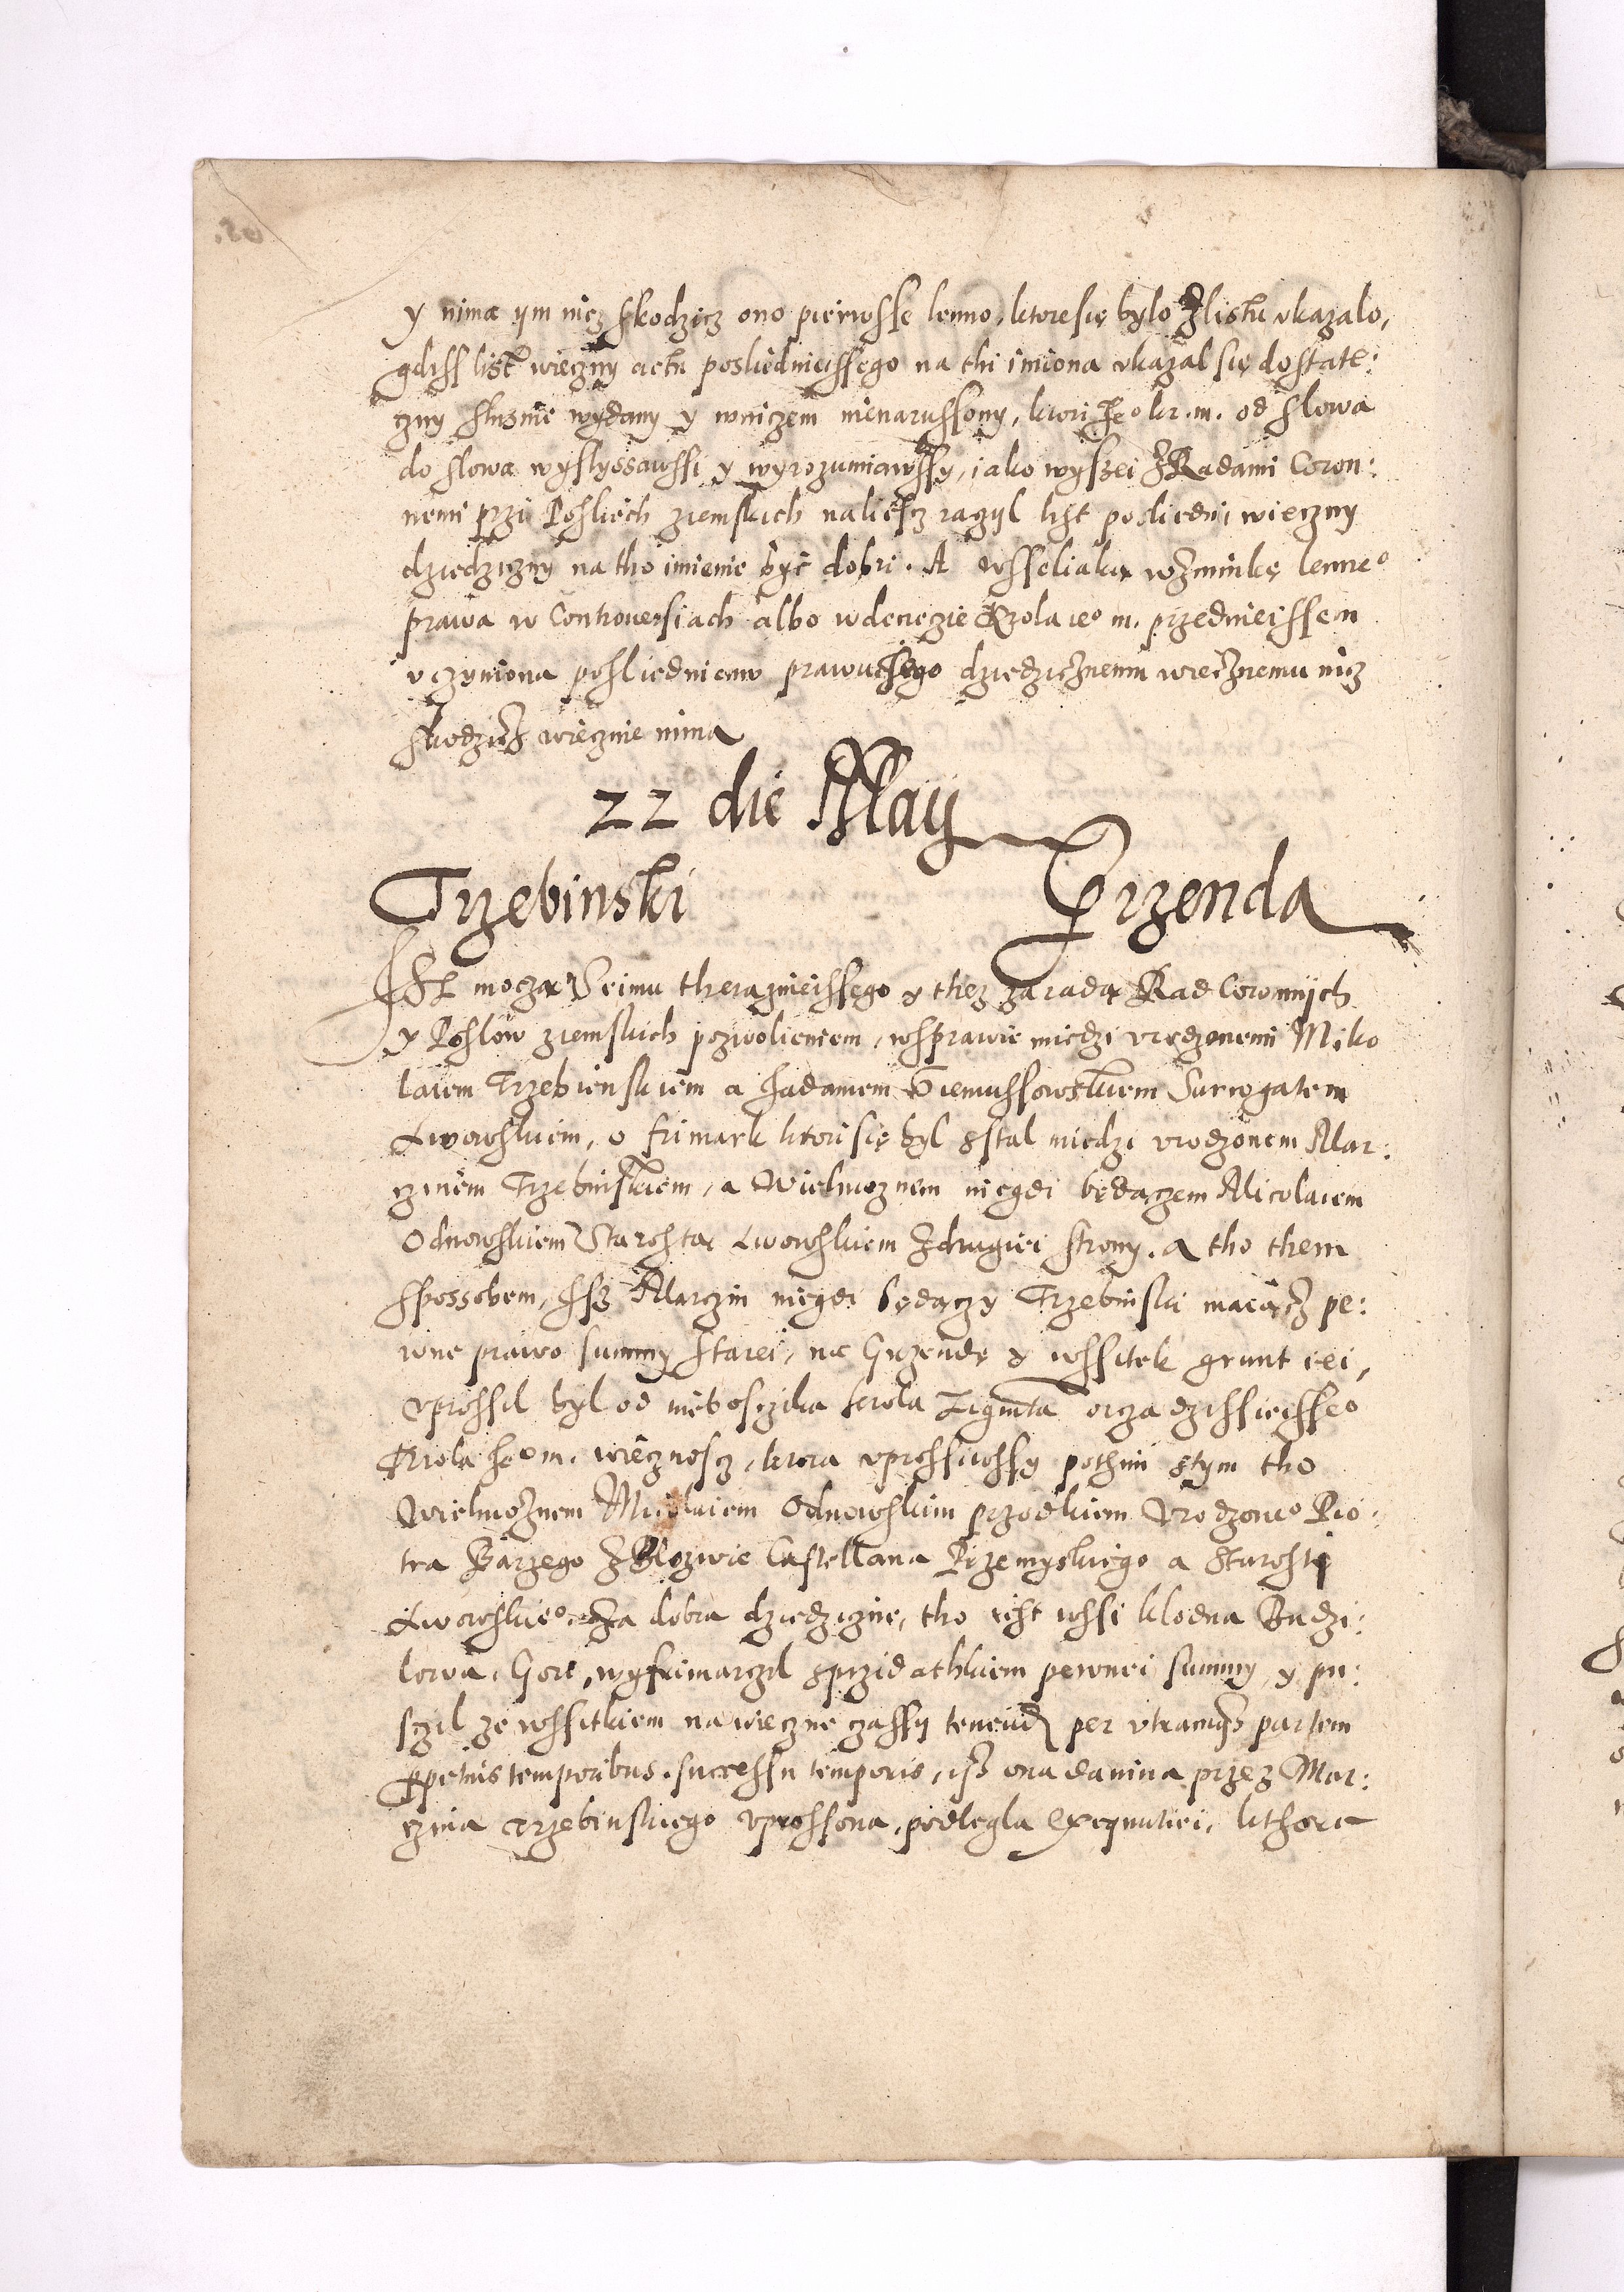 y nima ym nicz skodzicz ono pierwsse lenno, ktoresię bylo Zlistu ukazalo,
gdiss list wieczny actu posliednieissego na thi imiona ukazal się dostate:
czny slusnie wydany y wniczem nienarussony, ktori Jeo kr. m. od slowa
do slowa wyslyssawssi y wyrozumiawssy, iako wyszei Z Radami Coron:
nemi przi Posliech ziemskich naliescz raczyl list posliedni wieczny
dziedziczny na tho imienie być dobri. A wsseliaką wzminkę lenneo
prawa w Controversiach albo wdecrecie Krola ieo m. przednieissem
uczyniona posliedniemu prawu dziedzicznemu wiecznemu nicz
skodzicz wiecznie nima
22 die Maÿ
Trzebinski Grzenda
moczą Seimu therazneissego y thez za radą Rad Coronnÿch
y Poslow ziemskich pozwolieniem, wsprawie miedzi urodzonemi Miko
laiem Trzebienskiem a Jadamem Siemussowskiem Surrogatem
Lwowskiem, o frimark ktori się byl sstal miedzi urodzonem Mar:
czinem Trzebinskiem, a Wielmoznem niegdi będączem Micolaiem
Odnowskiem Starostą Lwowskiem Zdrugiei strony. A tho them
spossobem, Jsz Marczin niegdi będączy Trzebinski maiącz pe:
wne prawo summy starei, na Grzendę y wssitek grunt iei,
uprossil byl od niebosczika krola Zigmta oicza dzissieisseo
Krola Jeo m. wiecznoscz, ktora uprossiwssy pothim stym tho
Wielmoznem Micolaiem Odnowskim przodkiem Urodzoneo Pio:
tra Barzego Z Blozwie Castellana Przemyskiego a Starosti
Lwowskieo. Za dobra dziedziczne, tho iest wssi Klodna Budzi:
lowa, Gore, wyfrimarczil sprzidathkiem pewnei summy, y pu:
sczil ze wssitkiem nawieczne czassy tenend per utramqz partem
ppetuis temporibus. successu temporis, isz ona danina przez Mar:
czina Trzebinskiego uprossona, podlegla Exequutiei, kthora